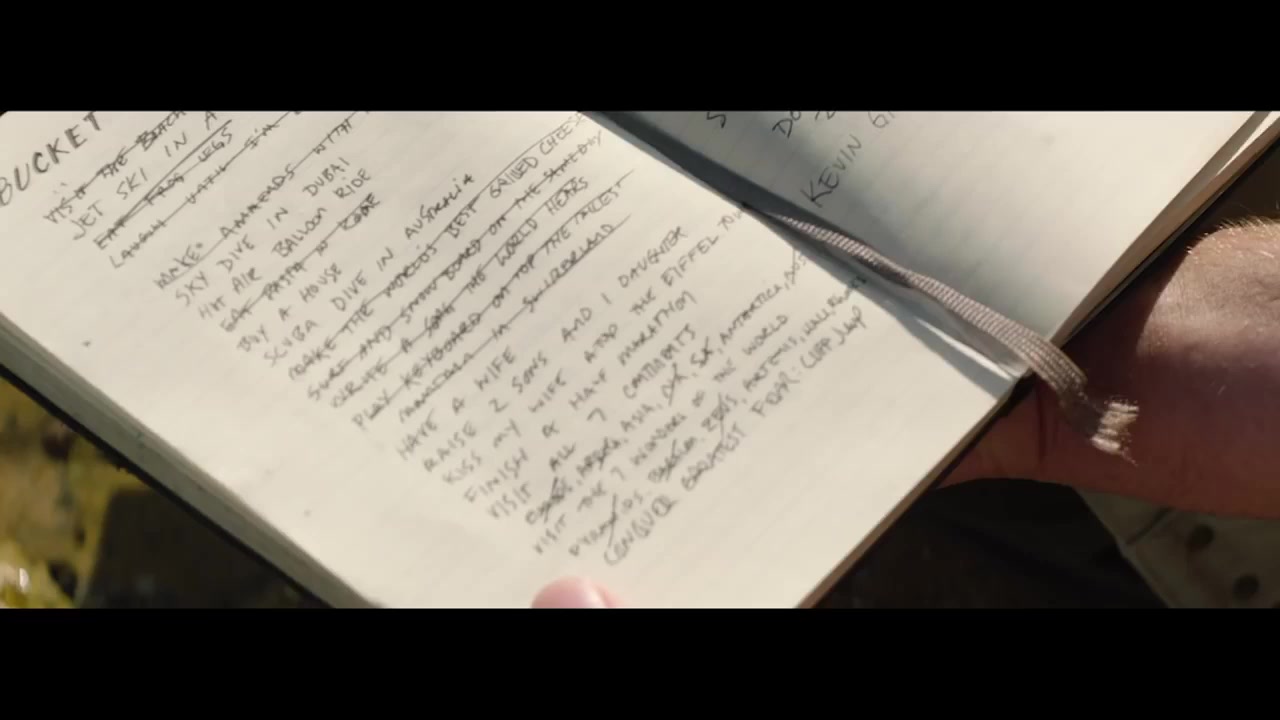 BUCKET
VISIT THE BEACH
JET SKI IN A
EAT FROG LEGS
LAUGH UNTIL I'M
MAKE AMMENDS WITH
SKY DIVE IN DUBAI
HOT AIR BALLOON RIDE
EAT PASTA IN ROME
BUY A HOUSE
SCUBA DIVE IN AUSTRALIA
MAKE THE WORLDS BEST GRILLED CHEESE
SURF AND SNOW BOARD ON THE SAME DAY
WRITE A SONG THE WORLD HEARS
PLAY KEYBOARD ON TOP THE TALLEST
MOUNTAIN IN SWITZERLAND
HAVE A WIFE
RAISE 2 SONS AND 1 DAUGHTER
KISS MY WIFE ATOP THE EIFFEL
FINISH A HALF MARATHON
VISIT ALL 7 CONTINENTS
ASIA, ANTARTICA,
VISIT THE 7 WONDERS OF THE WORLD
PYRAMIDS, ZEUS, ARTEMIS,
CONQUER GREATEST FEAR: CLIFF JUMP
S
DO
KEVIN